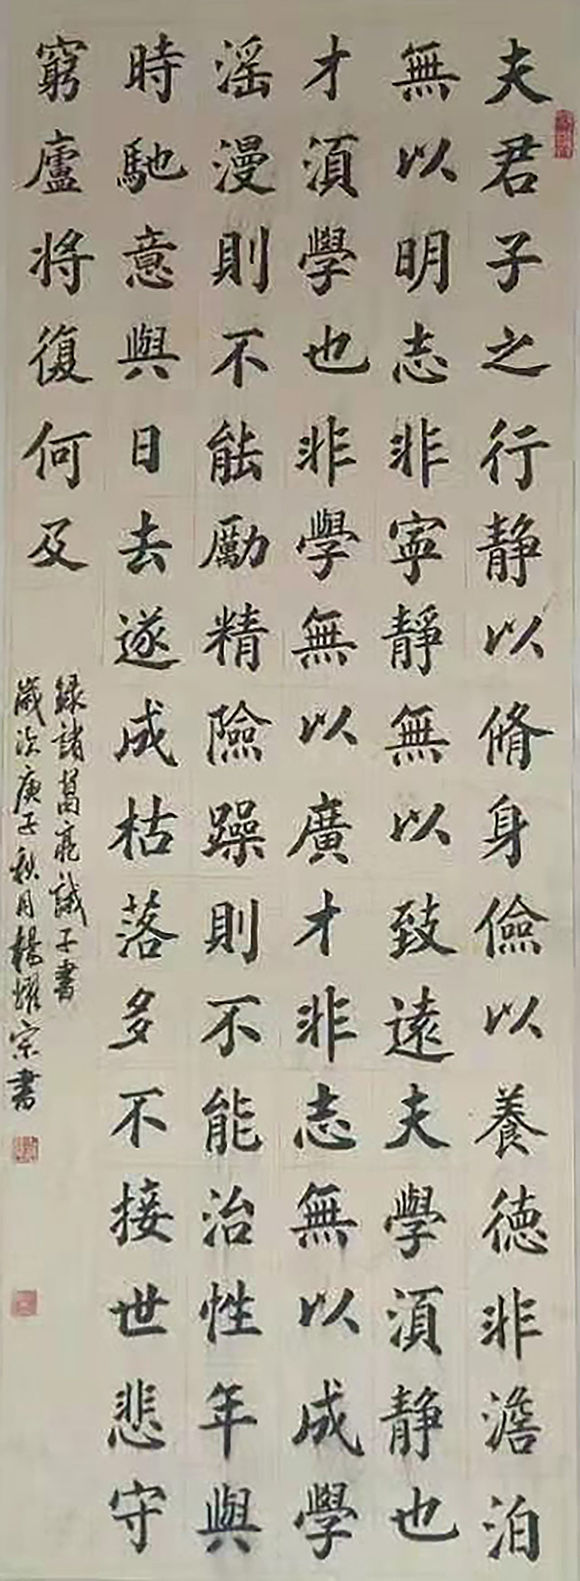 夫君子之行静以脩身儉以養德非澹泊
無以明志非寧靜無以致遠夫學須静也
才須學也非學無以廣才非志無以成學
滛漫則不能勵精險躁則不能治性年與
時馳意與日去遂成枯落多不接世悲守
窮廬將復何及
録諸葛亮誡子書
歲次庚子秋月楊耀宗書